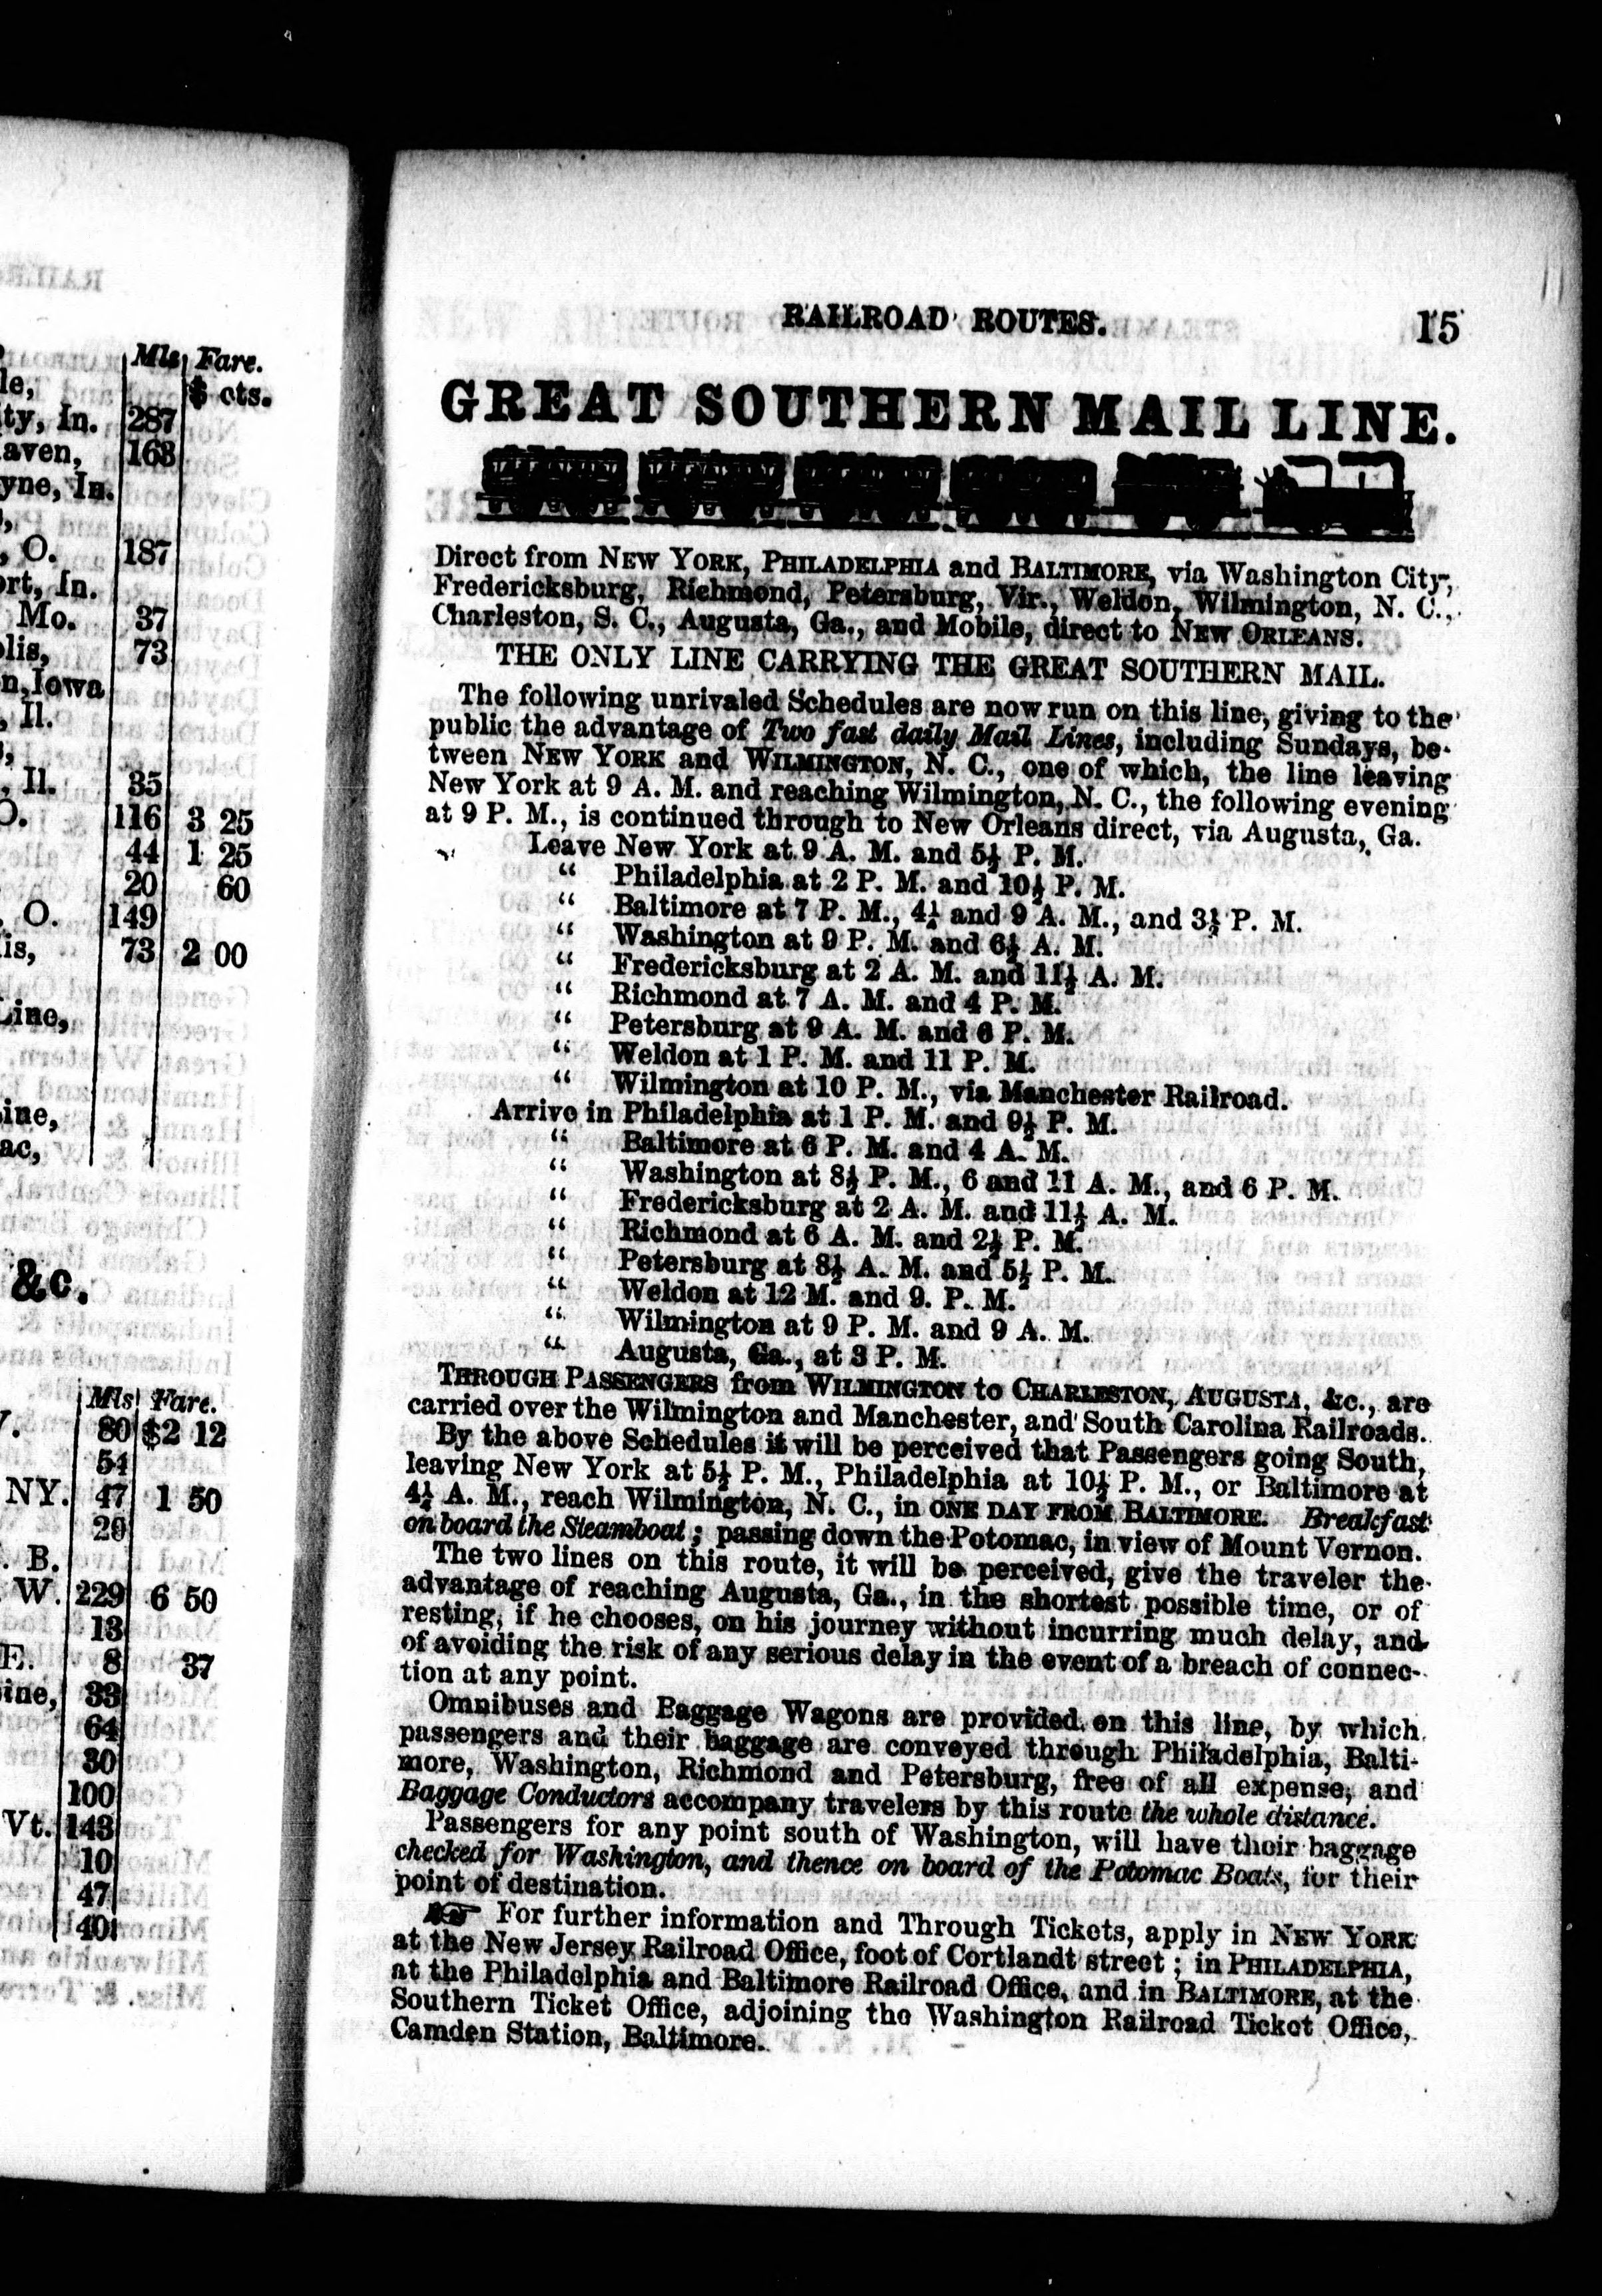 RAIL
Mls Fare.
le, $ cts.
ity, In. 287
aven, 163
yne, In.
, O. 187
ort, In.
Mo. 37
lis, 73
n, Iowa
, Il.
, Il. 35
O. 116 3 25
44 1 25
20 60
, O. 149
is, 73 2 00
Line,
ine,
ac,
&c.
Mls Fare.
80 $2 12
54
NY. 47 1 50
20
. B.
W. 229 6 50
13
E. 8 37
ine, 33
64
30
100
Vt. 143
10
47
401
RAILROAD ROUTES. 15
GREAT SOUTHERN MAIL LINE.
Direct from NEW YORK, PHILADELPHIA and BALTIMORE, via Washington City,
Fredericksburg, Richmond, Petersburg, Vir., Weldon, Wilmington, N. C.,
Charleston, S. C., Augusta, Ga., and Mobile, direct to NEW ORLEANS.
THE ONLY LINE CARRYING THE GREAT SOUTHERN MAIL.
The following unrivaled Schedules are now run on this line, giving to the
public the advantage of Two fast daily Mail Lines, including Sundays, be-
tween NEW YORK and WILMINGTON, N. C., one of which, the line leaving
New York at 9 A. M. and reaching Wilmington, N. C., the following evening
at 9 P. M., is continued through to New Orleans direct, via Augusta, Ga.
Leave New York at 9 A. M. and 5½ P. M.
“ Philadelphia at 2 P. M. and 10½ P. M.
“ Baltimore at 7 P. M., 4¼ and 9 A. M., and 3½ P. M.
“ Washington at 9 P. M. and 6½ A. M.
“ Fredericksburg at 2 A. M. and 11½ A. M.
“ Richmond at 7 A. M. and 4 P. M.
“ Petersburg at 9 A. M. and 6 P. M.
“ Weldon at 1 P. M. and 11 P. M.
“ Wilmington at 10 P. M., via Manchester Railroad.
Arrive in Philadelphia at 1 P. M. and 9½ P. M.
“ Baltimore at 6 P. M. and 4 A. M.
“ Washington at 8½ P. M., 6 and 11 A. M., and 6 P. M.
“ Fredericksburg at 2 A. M. and 11½ A. M.
“ Richmond at 6 A. M. and 2½ P. M.
“ Petersburg at 8½ A. M. and 5½ P. M.
“ Weldon at 12 M. and 9. P. M.
“ Wilmington at 9 P. M. and 9 A. M.
“ Augusta, Ga., at 3 P. M.
THROUGH PASSENGERS from WILMINGTON to CHARLESTON, AUGUSTA, &c., are
carried over the Wilmington and Manchester, and South Carolina Railroads.
By the above Schedules it will be perceived that Passengers going South,
leaving New York at 5½ P. M., Philadelphia at 10½ P. M., or Baltimore at
4¼ A. M., reach Wilmington, N. C., in ONE DAY FROM BALTIMORE. Breakfast
on board the Steamboat; passing down the Potomac, in view of Mount Vernon.
The two lines on this route, it will be perceived, give the traveler the
advantage of reaching Augusta, Ga., in the shortest possible time, or of
resting, if he chooses, on his journey without incurring much delay, and
of avoiding the risk of any serious delay in the event of a breach of connec-
tion at any point.
Omnibuses and Baggage Wagons are provided on this line, by which
passengers and their baggage are conveyed through Philadelphia, Balti-
more, Washington, Richmond and Petersburg, free of all expense, and
Baggage Conductors accompany travelers by this route the whole distance.
Passengers for any point south of Washington, will have their baggage
checked for Washington, and thence on board of the Potomac Boats, for their
point of destination.
☞ For further information and Through Tickets, apply in NEW YORK
at the New Jersey Railroad Office, foot of Cortlandt street; in PHILADELPHIA,
at the Philadelphia and Baltimore Railroad Office, and in BALTIMORE, at the
Southern Ticket Office, adjoining the Washington Railroad Ticket Office,
Camden Station, Baltimore.